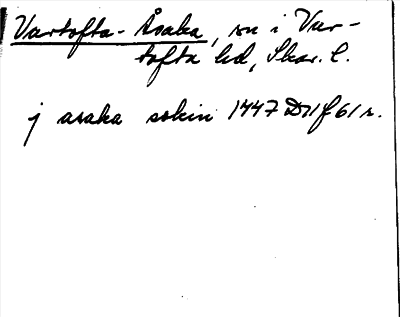 Vartofta-Åsaka, sn i Var-
tofta hd, Skar. l.
j asaka sokin 1447 D 11 f 61 r.